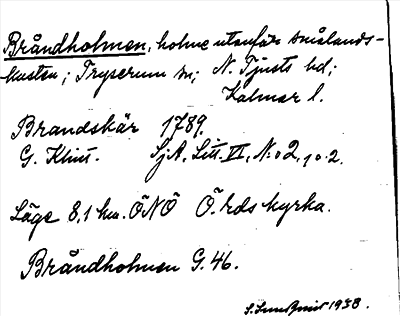 Bråndholmen, holme utanför smålands-
kusten; Tryserum sn; N. Tjusts hd;
Kalmar l.
Brandskär 1789.
G. Klint. SjA. Litt. VI, N:o 2, 10:2.
Läge 8,1 km. ÖNÖ Ö. Eds kyrka.
Bråndholmen G. 46.
1938.